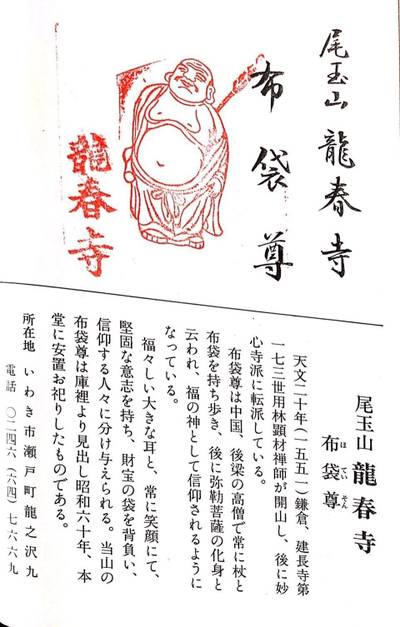 尾玉山 龍春寺
布袋尊
龍春寺
尾玉山 龍春寺
布袋尊
ほていそん
天文二十年（一五五一）鎌倉、建長寺第
一七三世用林顕材禅師が開山し、後に妙
心寺派に転派している。
布袋尊は中国、後梁の高僧で常に杖と
布袋を持ち歩き、後に弥勒菩薩の化身と
云われ、福の神として信仰されるように
なっている。
福々しい大きな耳と、常に笑顔にて、
堅固な意志を持ち、財宝の袋を背負い、
信仰する人々に分け与えられる。当山の
布袋尊は庫裡より見出し昭和六十年、本
堂に安置お祀りしたものである。
所在地 いわき市瀬戸町龍之沢九
電話 〇二四六（六四）七六六九